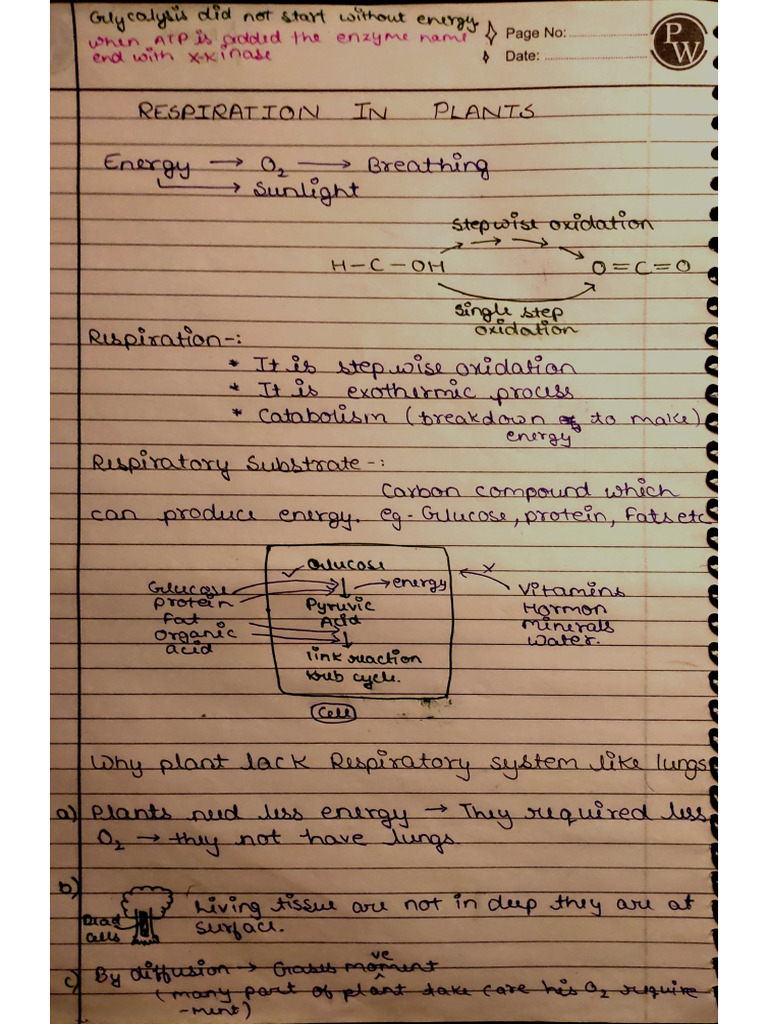 Glycolysis did not start without energy
when ATP is added the enzyme name
end with x-kinase
Page No:
Date:
PW
RESPIRATION IN PLANTS
Energy → O2 → Breathing
→ Sunlight
Stepwise oxidation
H-C-OH
O=C=O
Single step
oxidation
Respiration-:
* It is stepwise oxidation
* It is exothermic process
* Catabolism (breakdown to make)
energy
Respiratory Substrate-:
Carbon compound which
can produce energy. eg- Glucose, protein, Fats etc
Glucose
Protein
Fat
Organic
acid
✓ Glucose
→ energy
Pyruvic
Acid
link reaction
Krub cycle.
Cell
x
Vitamins
Hormon
minerals
water.
Why plant lack Respiratory system like lungs
a) Plants need less energy → They required less
O2 → they not have lungs.
b)
Dead
cells
Living tissue are not in deep they are at
surface.
c) By diffusion → Gases moment
ve
(many part of plant take care his O2 require
-ment)